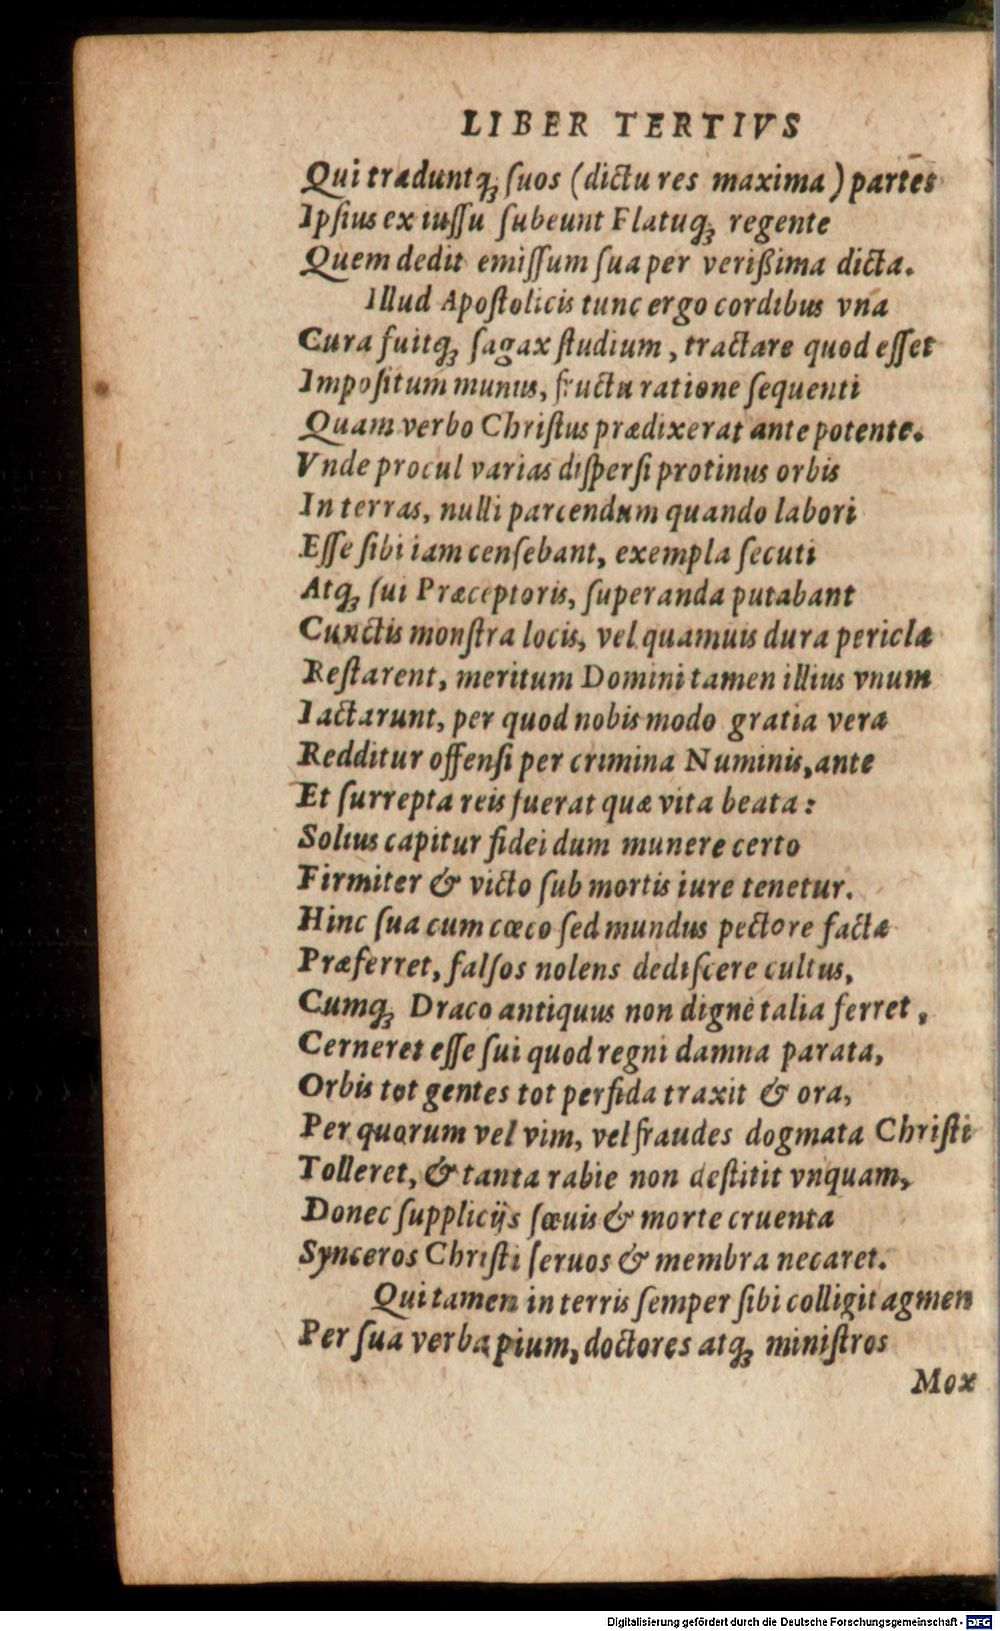 LIBER TERTIVS
Qui traduntq́; ſuos (dictu res maxima) partes
Ipſius ex iuſſu ſubeunt Flatuq́; regente
Quem dedit emiſſum ſua per verißima dicta.
Illud Apoſtolicis tunc ergo cordibus vna
Cura fuitq́; ſagax ſtudium, tractare quod eſſet
Impoſitum munus, fructu ratione ſequenti
Quam verbo Chriſtus prædixerat ante potente.
Vnde procul varias diſperſi protinus orbis
In terras, nulli parcendum quando labori
Eſſe ſibi iam cenſebant, exempla ſecuti
Atq́; ſui Præceptoris, ſuperanda putabant
Cunctis monſtra locis, vel quamuis dura pericla
Reſtarent, meritum Domini tamen illius vnum
Iactarunt, per quod nobis modo gratia vera
Redditur offenſi per crimina Numinis, ante
Et ſurrepta reis fuerat quæ vita beata:
Solius capitur fidei dum munere certo
Firmiter & victo ſub mortis iure tenetur.
Hinc ſua cum cœco ſed mundus pectore facta
Præferret, falſos nolens dediſcere cultus,
Cumq́; Draco antiquus non dignè talia ferret,
Cerneret eſſe ſui quod regni damna parata,
Orbis tot gentes tot perfida traxit & ora,
Per quorum vel vim, vel fraudes dogmata Chriſti
Tolleret, & tanta rabie non deſtitit vnquam,
Donec ſupplicijs ſœuis & morte cruenta
Synceros Chriſti ſeruos & membra necaret.
Qui tamen in terris ſemper ſibi colligit agmen
Per ſua verba pium, doctores atq́; miniſtros
Mox
Digitalisierung gefördert durch die Deutsche Forschungsgemeinschaft - DFG